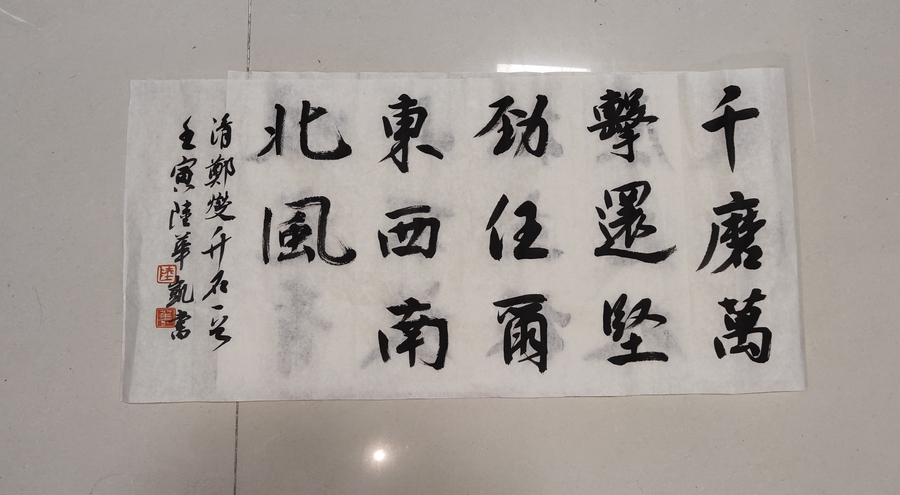 千磨萬
擊還堅
勁任爾
東西南
北風
清鄭燮竹石一首
壬寅陸華凱書